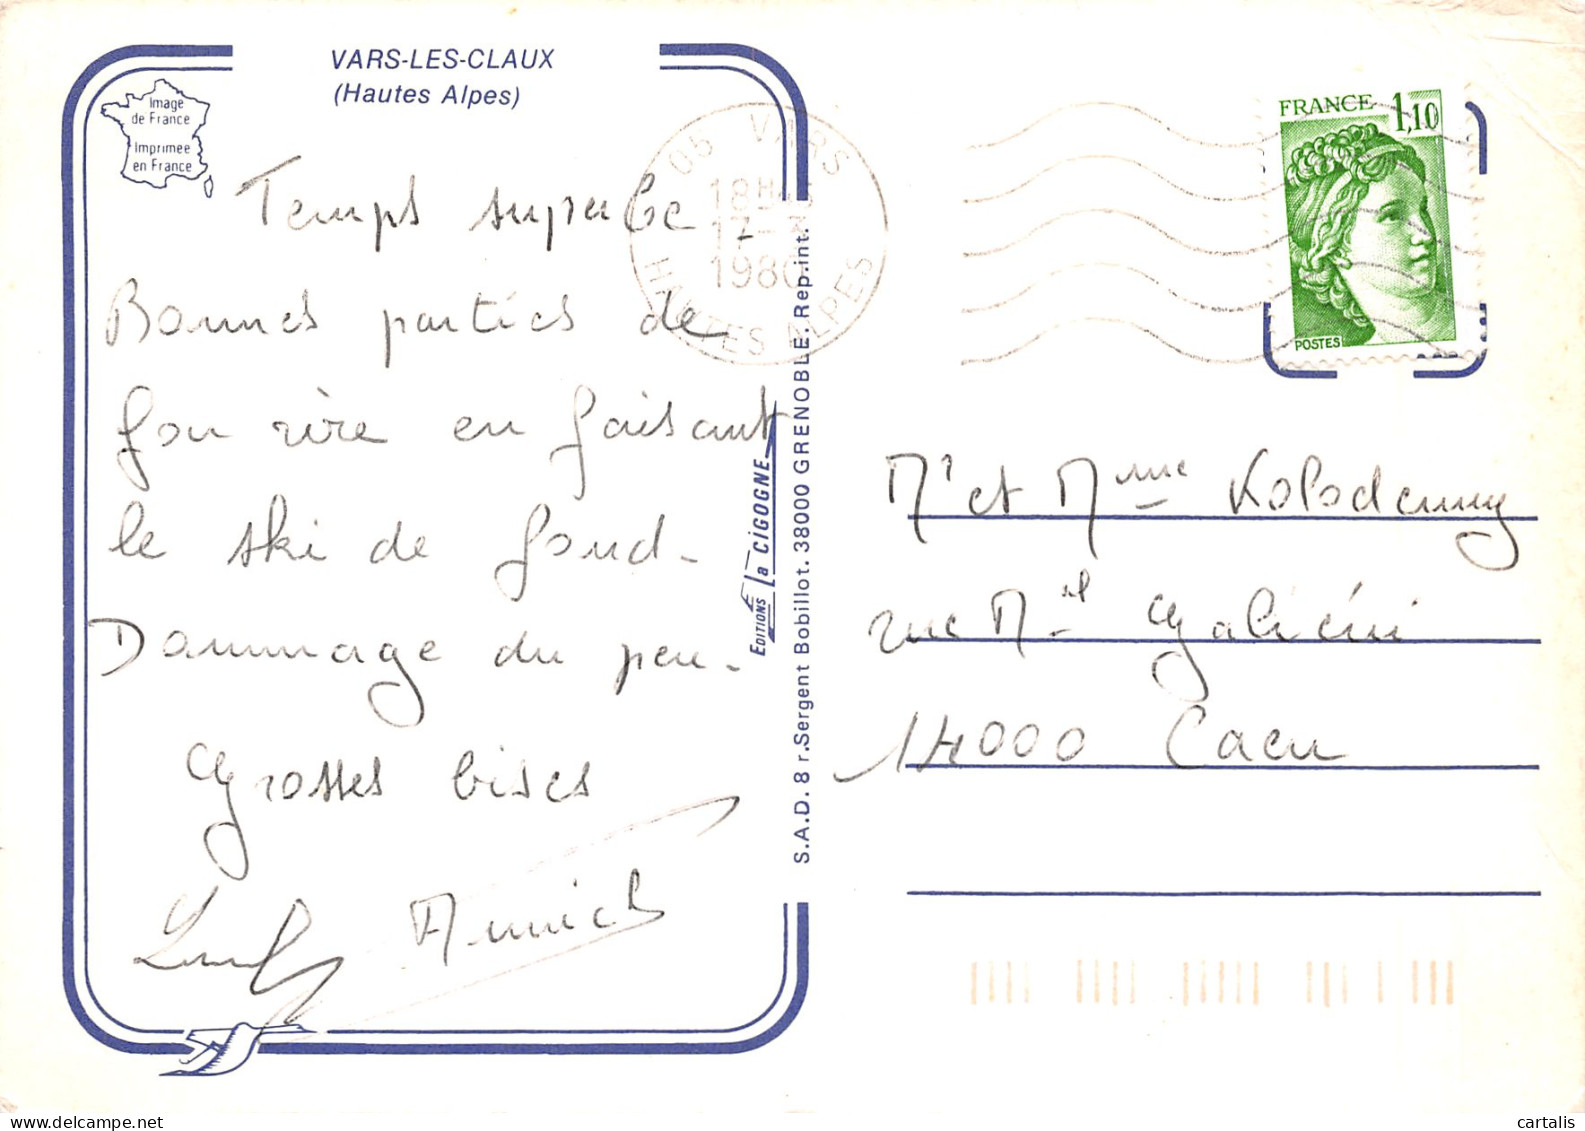 VARS-LES-CLAUX
(Hautes Alpes)
Image
de France
Imprimee
en France
Temps superbe.
Bonnes parties de
fou rire en faisant
le ski de fond.
Dommage du peu.
Grosses bises
Annick
EDITIONS La CIGOGNE
S.A.D. 8 r. Sergent Bobillot. 38000 GRENOBLE. Rep. int.
05 VARS
18H
17-3
1980
HAUTES ALPES
FRANCE 1,10
POSTES
Mr et Mme Kolodenny
rue Mal Galliéni
14000 Caen
cartalis.com